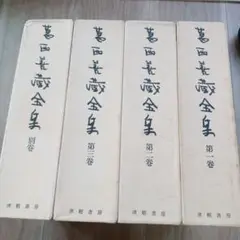 葛西善蔵全集
第一巻
津軽書房
葛西善蔵全集
第二巻
津軽書房
葛西善蔵全集
第三巻
津軽書房
葛西善蔵全集
別巻
津軽書房